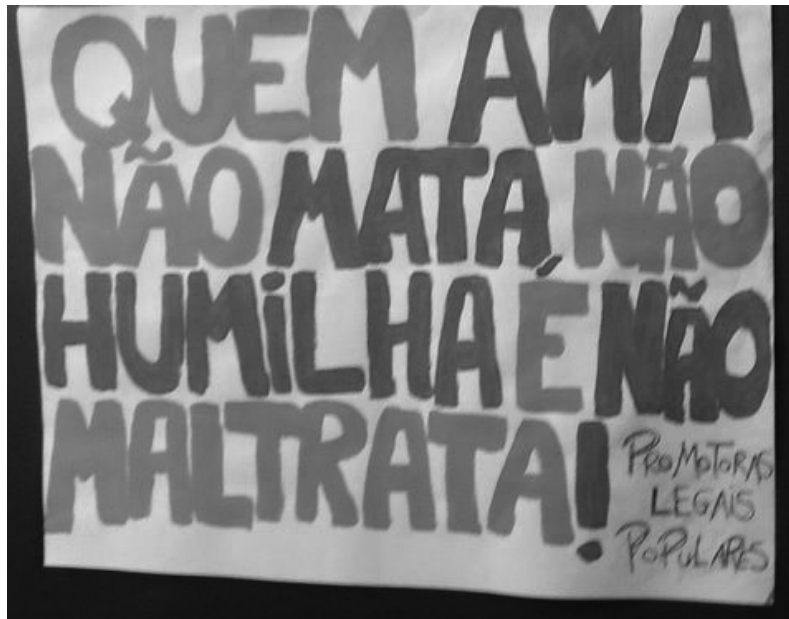 QUEM AMA
NÃO MATA NÃO
HUMiLHA É NÃO
MALTRATA!
PROMOTORAS
LEGAIS
POPULARES